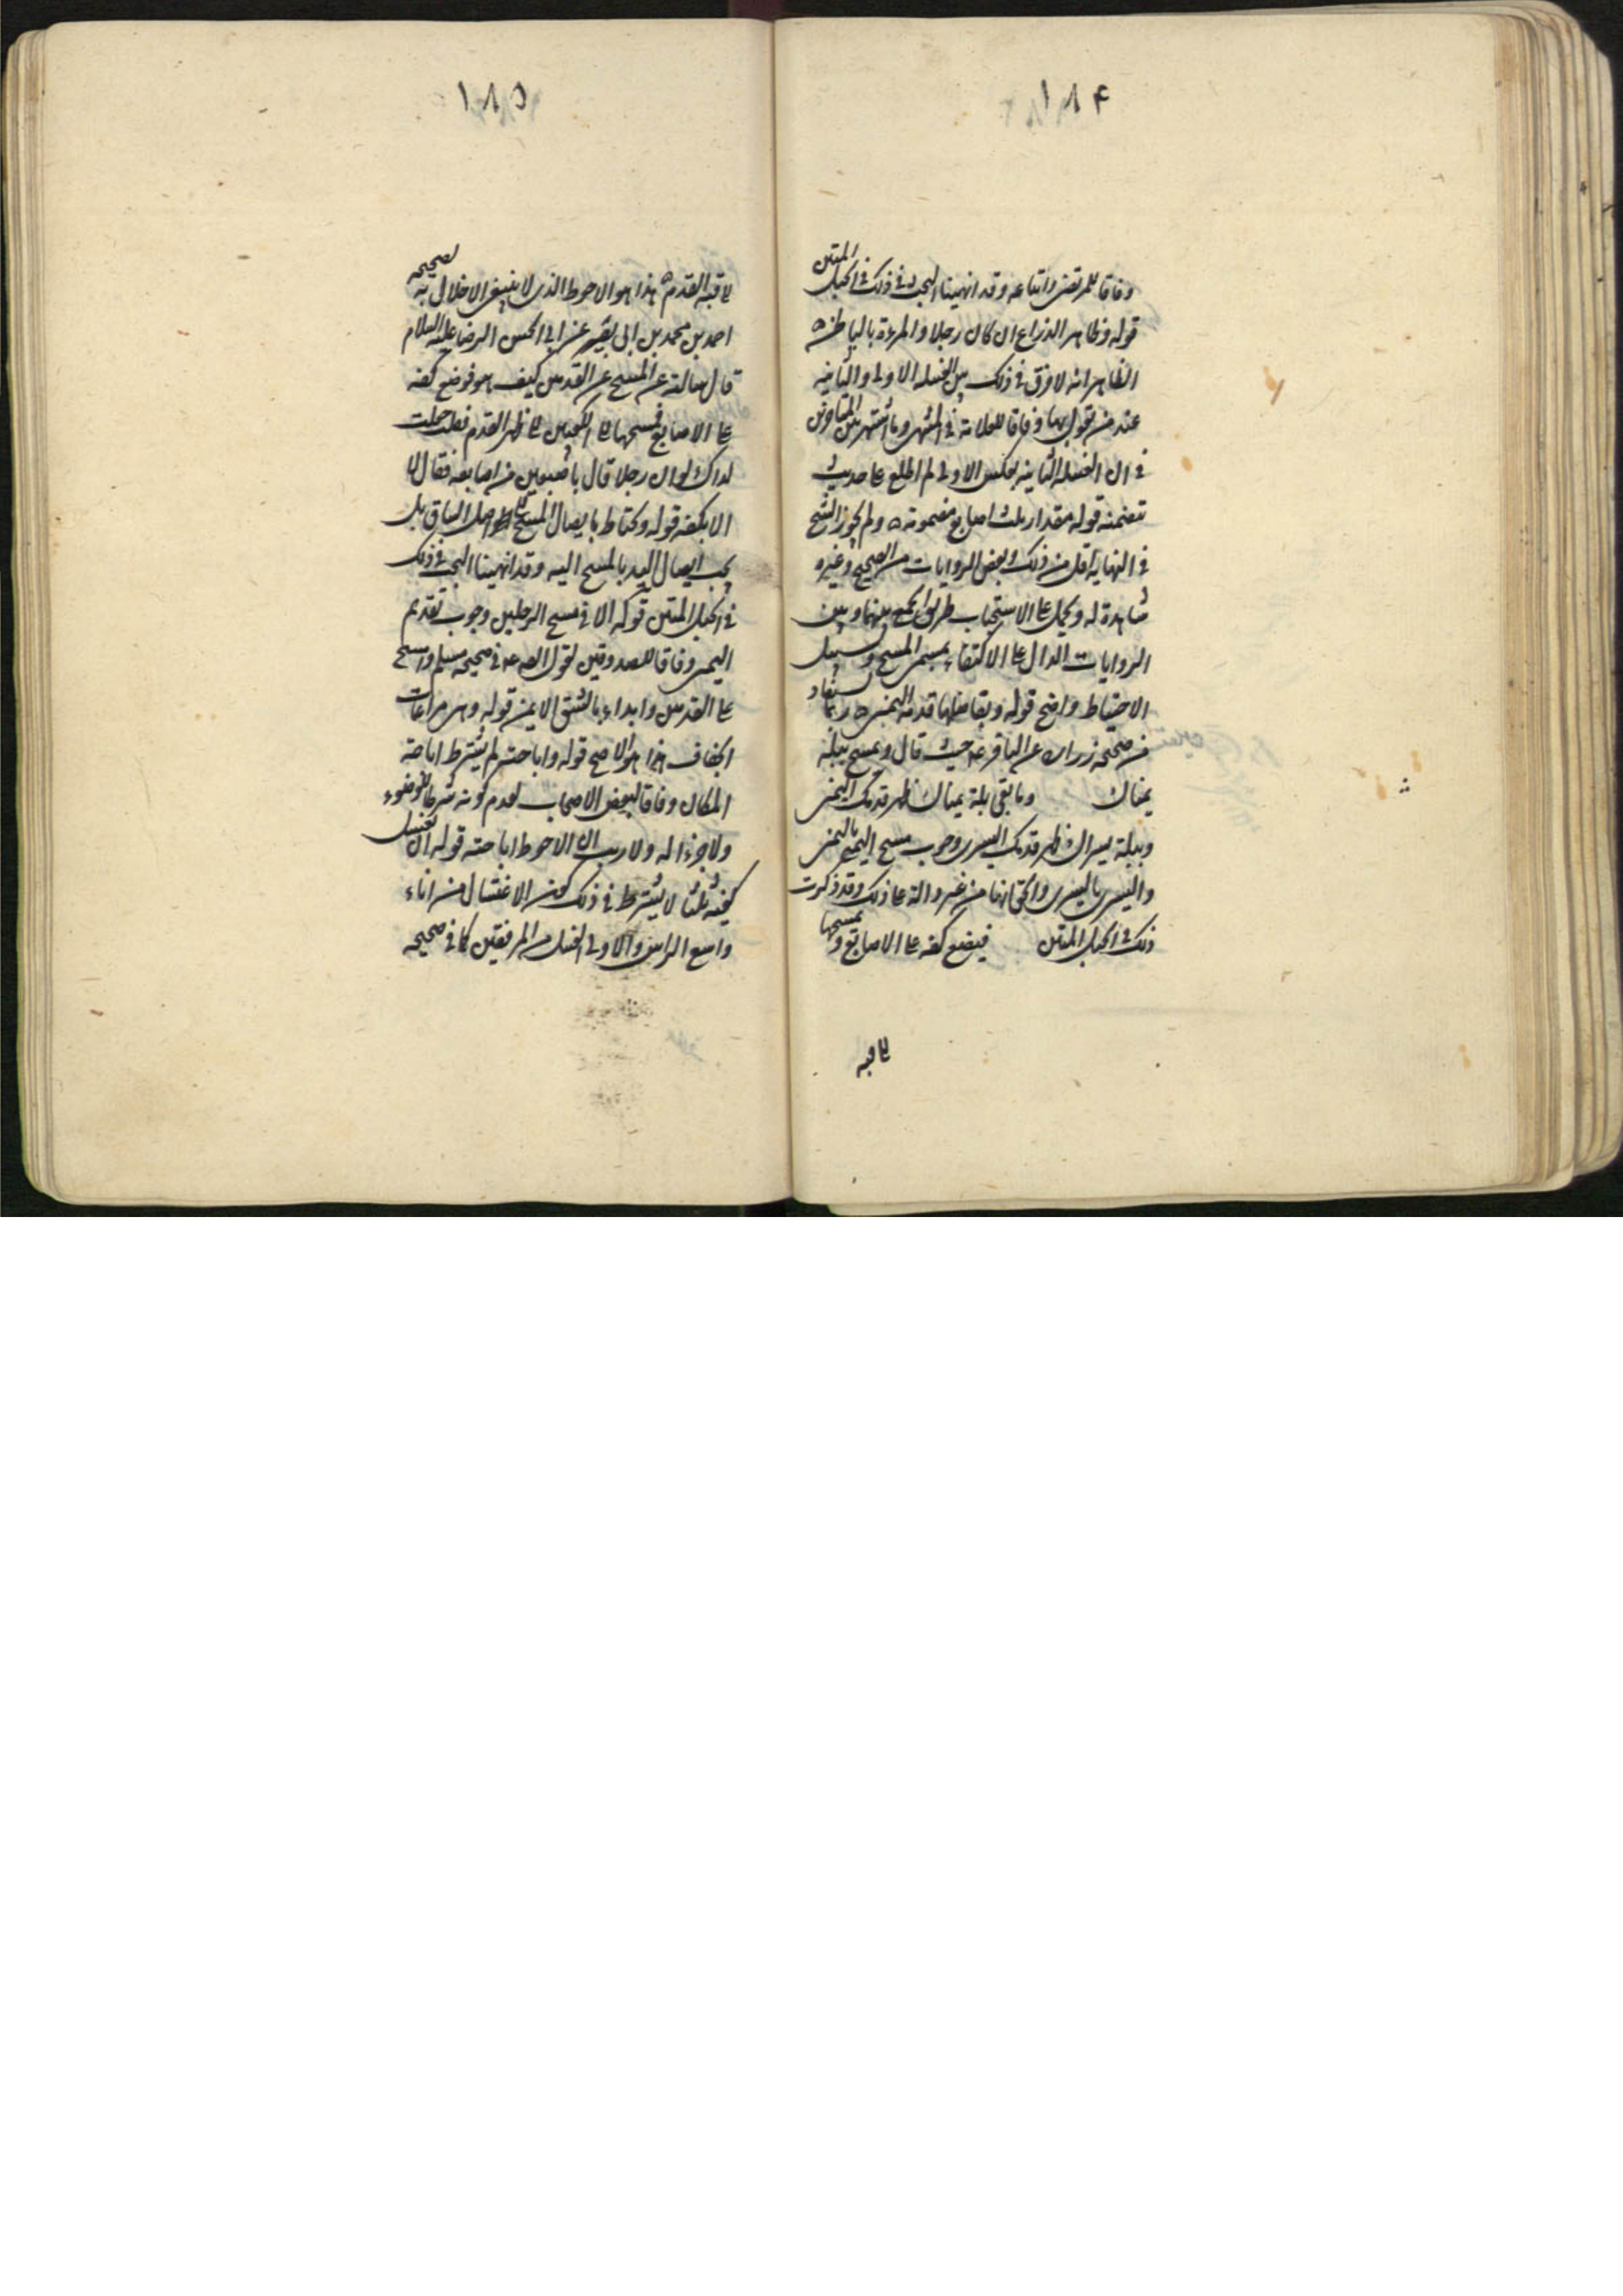 ١٨٤
وفاقا للمرتضى واتباعه وقد انهينا البحث في ذلك في الحبل المتين
قوله وظاهر الذراع ان كان رجلا والمرءة بالباطن ه
الظاهر انه لا فرق في ذلك بين الغسلة الاولى والثانية
عند من يقول بها وفاقا للعلامة في المنتهى وما اشتهر بين المتاخرين
في ان الغسلة الثانية بعكس الاولى لم اطلع على حديث
تتضمنه قوله مقدار ثلث اصابع مضمومة ه ولم يجوز الشيخ
في النهاية اقل من ذلك وبعض الروايات من الصحيح وغيره
شاهدة له ويحمل على الاستحباب طريق الجمع بينهما وبين
الروايات الدال على الاكتفاء بمسمى المسح وسبيل
الاحتياط واضح قوله وبفاضلها قدمه اليمنى ه ربما يستفاد
من صحيحه زراره عن الباقر عه حيث قال وتمسح ببلة
يمناك وما بقى بلة يمناك ظهر قدمك اليمنى
وببلة يسراك ظهر قدمك اليسرى وجوب مسح اليمنى باليمنى
واليسرى باليسرى واكتفائها من غير دلالة على ذلك وقد ذكرت
ذلك في الحبل المتين فيضع كفه على الاصابع ويمسحها
الى قبه
١٨٥
الى قبة القدم ه هذا هو الاحوط الذى لا ينبغى الاخلال به لصحيحه
احمد بن محمد بن ابى نصر عن ابى الحسن الرضا عليه السلام
قال سالته عن المسح عن القدمين كيف هو فوضع كفه
على الاصابع فمسحها الى الكعبين الى ظهر القدم فقلت جعلت
فداك لو ان رجلا قال باصبعين من اصابعه فقال لا
الا بكفه قوله ويحتاط بايصال المسح الى اصل الساق بل
يجب ايصال اليد بالمسح اليه وقد انهينا البحث في ذلك
في الحبل المتين قوله الا في مسح الرجلين وجوب تقديم
اليمنى وفاقا للصدوقين لقول الص عه في صحيحه مسلم وامسح
على القدمين وابداء بالشق الايمن قوله وهى مراعات
الجفاف هذا هو الاصح قوله واباحته لم يشترط اباحة
المكان وفاقا لبعض الاصحاب لعدم كونه شرطا للوضوء
ولا جزءا له ولا ريب ان الاحوط اباحته قوله ان يغسل
كفيه ثلثا لا يشترط في ذلك كون الاغتسال من اناء
واسع الراس والاولى الغسل من المرفقين كما في صحيحه